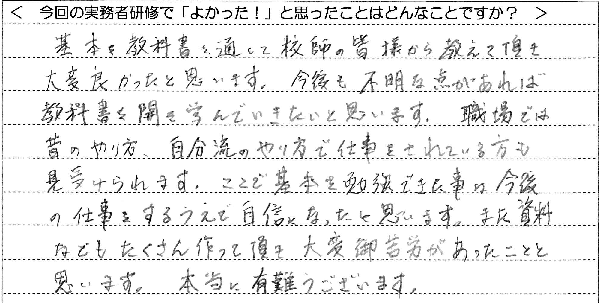 ＜ 今回の実務者研修で「よかった！」と思ったことはどんなことですか？ ＞
基本を教科書を通して校師の皆様から教えて頂き
大変良かったと思います。今後も不明な点があれば
教科書を開き学んでいきたいと思います。職場では
昔のやり方、自分流のやり方で仕事をされている方も
見受けられます。ここで基本を勉強できた事は今後
の仕事をするうえで自信になったと思います。また資料
などもたくさん作って頂き大変御苦労があったことと
思います。本当に有難うございます。